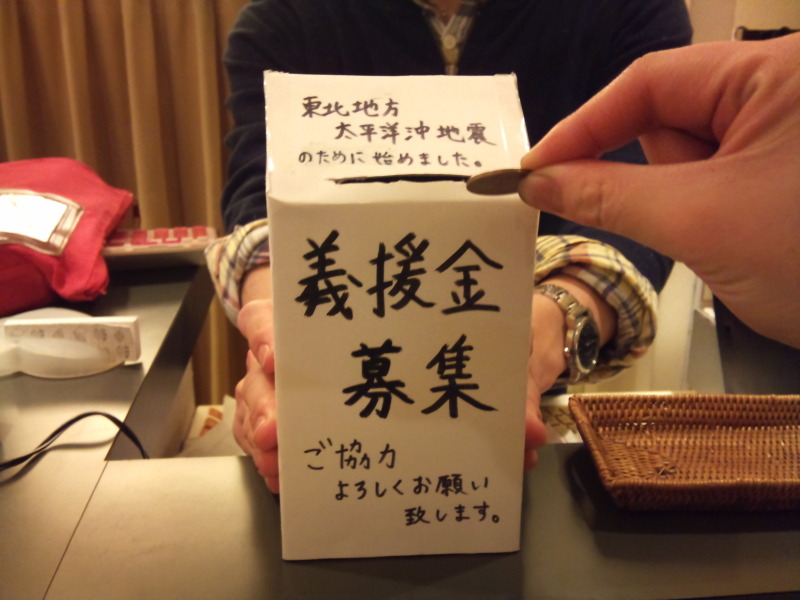 東北地方
太平洋沖地震
のために始めました。
義援金
募集
ご協力
よろしくお願い
致します。